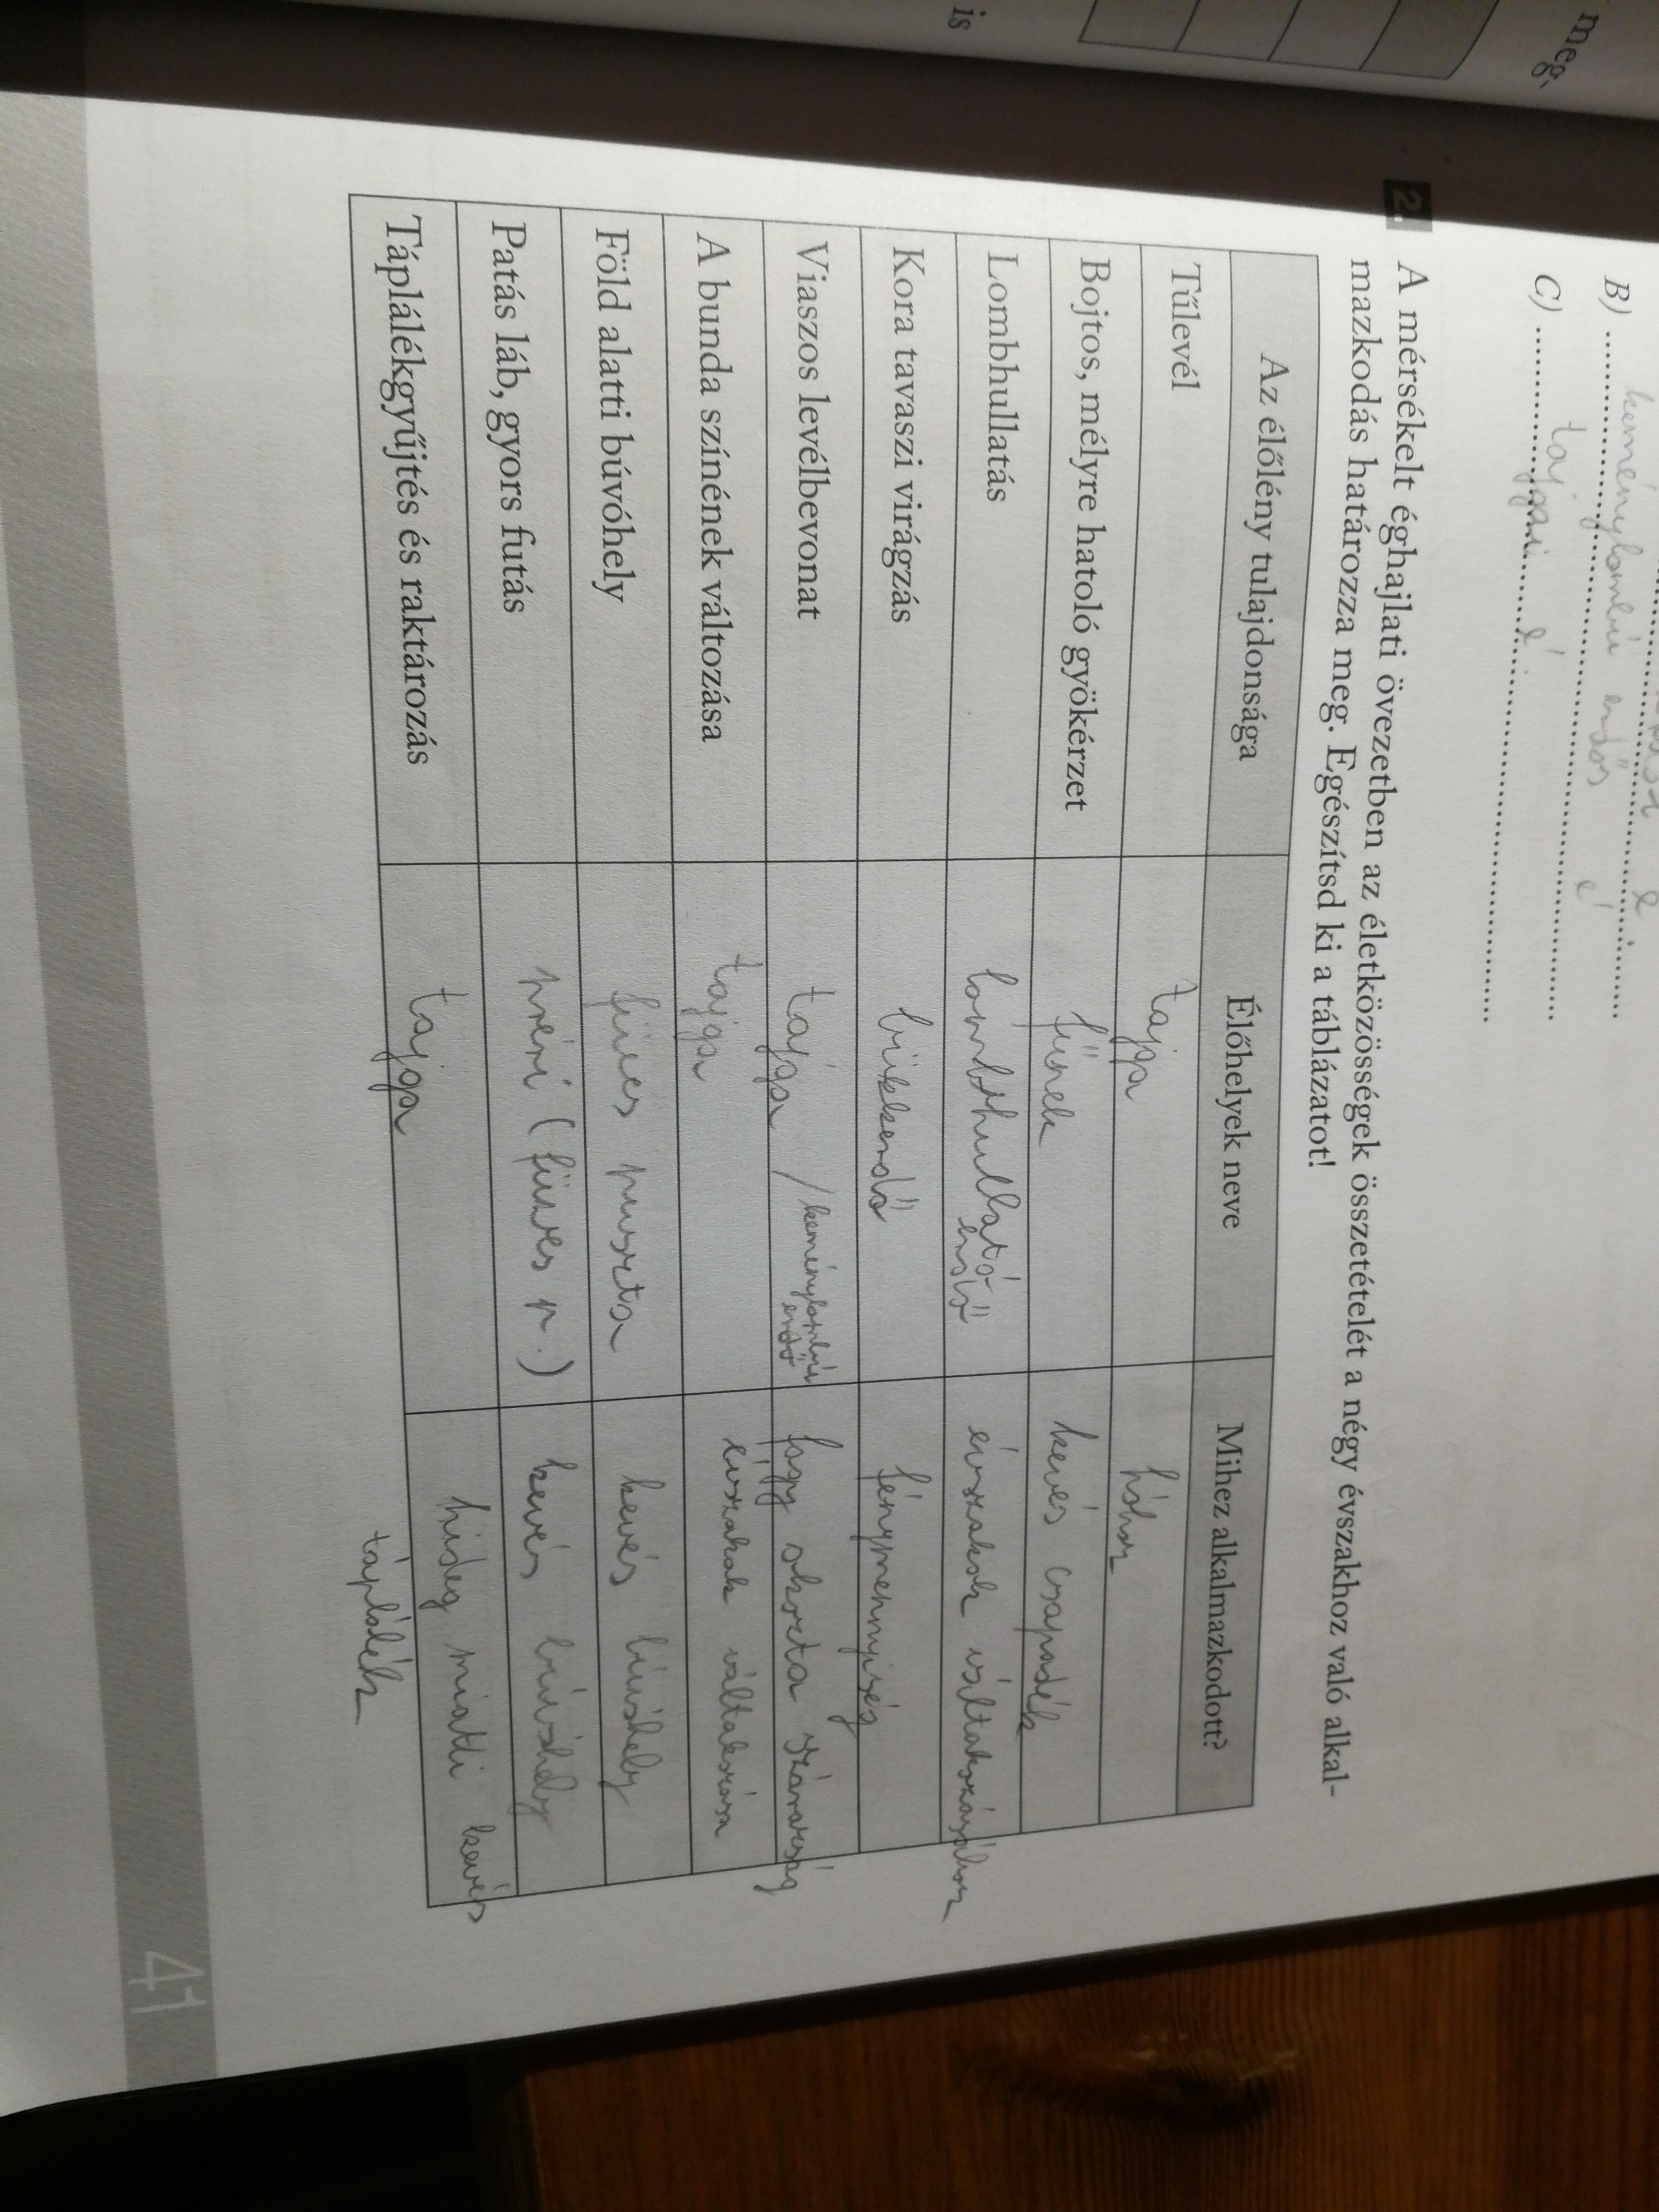 meg.
is
B) keménylombú erdős é
C) tajgai é.
2. A mérsékelt éghajlati övezetben az életközösségek összetételét a négy évszakhoz való alkal-
mazkodás határozza meg. Egészítsd ki a táblázatot!
Az élőlény tulajdonsága Élőhelyek neve Mihez alkalmazkodott?
Tűlevél tajga hóhoz
Bojtos, mélyre hatoló gyökérzet fűnek kevés csapadék
Lombhullatás lombhullató erdő évszakok váltakozásához
Kora tavaszi virágzás bükkerdő fénymennyiség
Viaszos levélbevonat tajga / keménylombú erdő fagy okozta szárazság
A bunda színének változása tajga évszakok váltakozása
Föld alatti búvóhely füves puszta kevés búvóhely
Patás láb, gyors futás préri (füves p.) kevés búvóhely
Táplálékgyűjtés és raktározás tajga hideg miatti kevés
táplálék
41